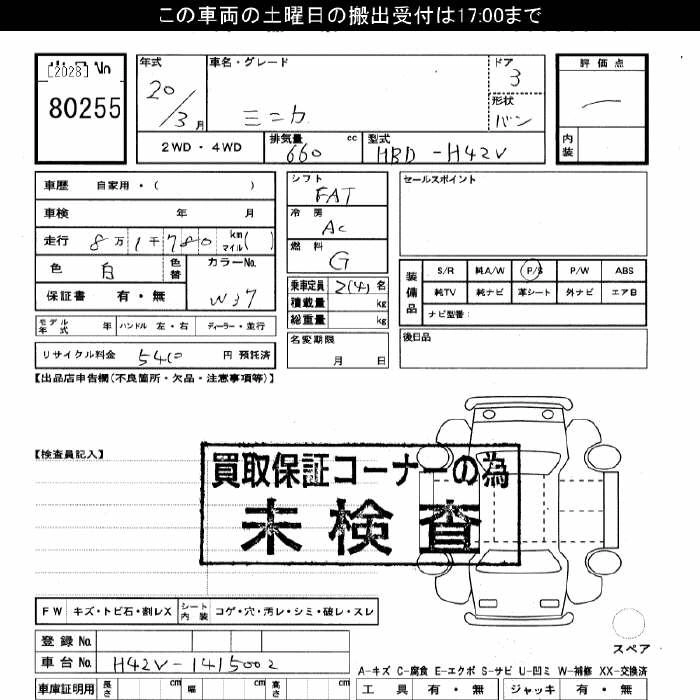 この車両の土曜日の搬出受付は17:00まで
[2028]
80255
年式
20/3月
車名・グレード
ミニカ
ドア
3
形状
バン
評価点
内装
2WD・4WD
排気量 660 cc
型式 HBD-H42V
車歴 自家用・( )
車検 年 月
走行 8万1千780 km マイル( )
色 白 色替
カラーNo. W37
保証書 有・無
モデル年式 年 ハンドル 左・右 ディーラー・並行
リサイクル料金 5410 円 預託済
シフト
FAT
冷房
AC
燃料
G
乗車定員 2(4)名
積載量 kg
総重量 kg
名変期限
月 日
セールスポイント
装備品
S/R 純A/W P/S P/W ABS
純TV 純ナビ 革シート 外ナビ エアB
ナビ型番:
後日品
【出品店申告欄(不良箇所・欠品・注意事項等)】
【検査員記入】
買取保証コーナーの為
未検査
FW キズ・トビ石・割レX
シート内装 コゲ・穴・汚レ・シミ・破レ・スレ
スペア
登録No.
車台No. H42V-1415002
車庫証明用 長さ cm 幅 cm 高さ cm
A-キズ C-腐食 E-エクボ S-サビ U-凹ミ W-補修 XX-交換済
工具 有・無 ジャッキ 有・無